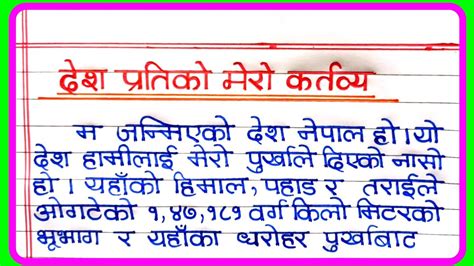 देश प्रतिको मेरो कर्तव्य
म जन्मिएको देश नेपाल हो । यो
देश हामीलाई मेरो पुर्खाले दिएको नासो
हो । यहाँको हिमाल, पहाड र तराईले
ओगटेको १,४७,१८१ वर्ग किलो मिटरको
भूभाग र यहाँका धरोहर पुर्खाबाट